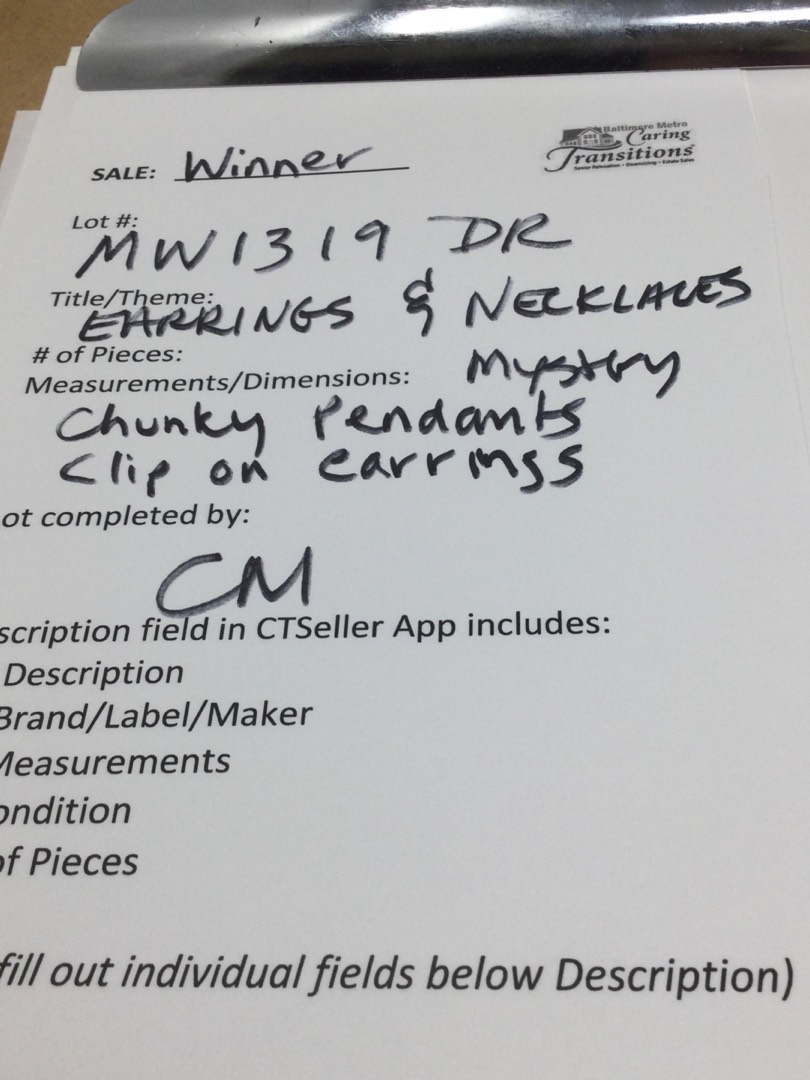 Baltimore Metro
Caring
Transitions
Senior Relocation • Downsizing • Estate Sales
SALE: Winner
Lot #:
MW1319 DR
Title/Theme:
EARRINGS & NECKLACES
# of Pieces:
Mystery
Measurements/Dimensions:
Chunky Pendants
Clip on earrings
ot completed by:
CM
scription field in CTSeller App includes:
Description
Brand/Label/Maker
Measurements
ondition
of Pieces
fill out individual fields below Description)